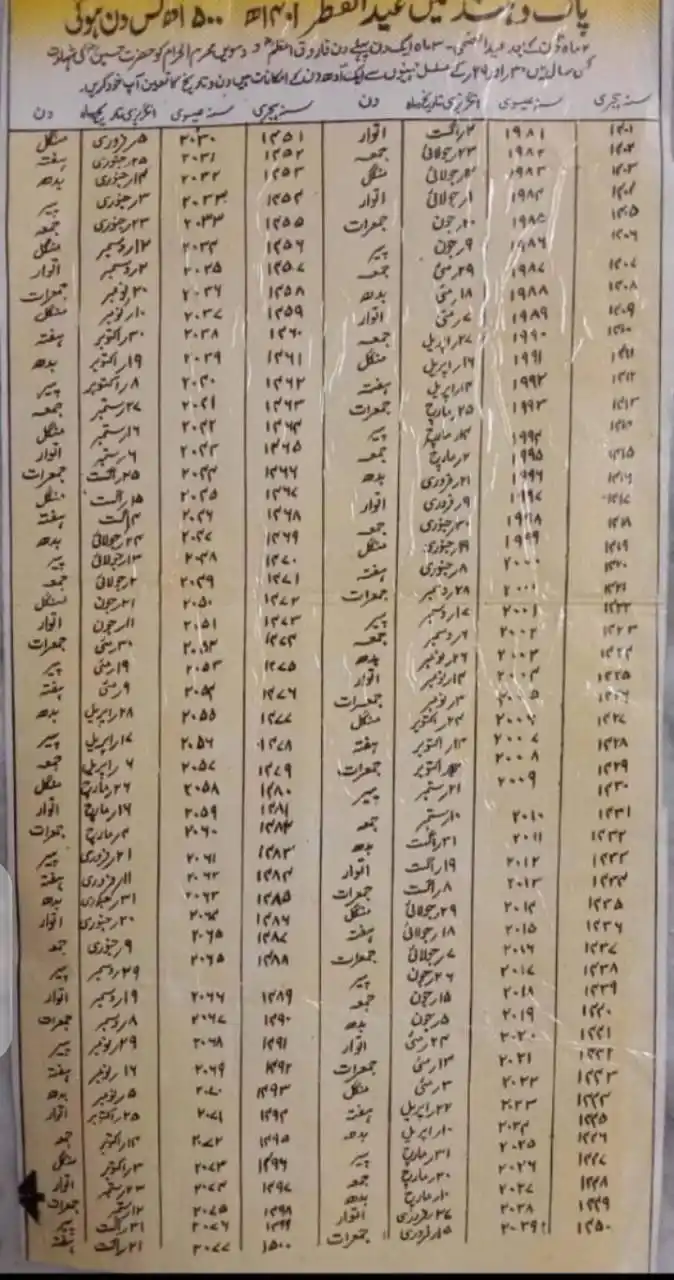 پاک و ہند میں عید الفطر ۱۴۰۱ھ تا ۱۵۰۰ھ کس دن ہوگی
سنہ ہجری سنہ عیسوی انگریزی تاریخ ماہ دن سنہ ہجری سنہ عیسوی انگریزی تاریخ ماہ دن
۱۴۰۱ ۱۹۸۱ ۲ر اگست اتوار ۱۴۵۱ ۲۰۳۰ ۵ر فروری منگل
۱۴۰۲ ۱۹۸۲ ۲۳ر جولائی جمعہ ۱۴۵۲ ۲۰۳۱ ۲۵ر جنوری ہفتہ
۱۴۰۳ ۱۹۸۳ ۱۲ر جولائی منگل ۱۴۵۳ ۲۰۳۲ ۱۴ر جنوری بدھ
۱۴۰۴ ۱۹۸۴ ۱ر جولائی اتوار ۱۴۵۴ ۲۰۳۳ ۳ر جنوری پیر
۱۴۰۵ ۱۹۸۵ ۲۰ر جون جمعرات ۱۴۵۵ ۲۰۳۳ ۲۳ر جنوری جمعہ
۱۴۰۶ ۱۹۸۶ ۹ر جون پیر ۱۴۵۶ ۲۰۳۴ ۱۲ر دسمبر منگل
۱۴۰۷ ۱۹۸۷ ۲۹ر مئی جمعہ ۱۴۵۷ ۲۰۳۵ ۲ر دسمبر اتوار
۱۴۰۸ ۱۹۸۸ ۱۸ر مئی بدھ ۱۴۵۸ ۲۰۳۶ ۲۰ر نومبر جمعرات
۱۴۰۹ ۱۹۸۹ ۷ر مئی اتوار ۱۴۵۹ ۲۰۳۷ ۱۰ر نومبر منگل
۱۴۱۰ ۱۹۹۰ ۲۷ر اپریل جمعہ ۱۴۶۰ ۲۰۳۸ ۳۰ر اکتوبر ہفتہ
۱۴۱۱ ۱۹۹۱ ۱۶ر اپریل منگل ۱۴۶۱ ۲۰۳۹ ۱۹ر اکتوبر بدھ
۱۴۱۲ ۱۹۹۲ ۴ر اپریل ہفتہ ۱۴۶۲ ۲۰۴۰ ۸ر اکتوبر پیر
۱۴۱۳ ۱۹۹۳ ۲۵ر مارچ جمعرات ۱۴۶۳ ۲۰۴۱ ۲۷ر ستمبر جمعہ
۱۴۱۴ ۱۹۹۴ ۱۴ر مارچ پیر ۱۴۶۴ ۲۰۴۲ ۱۶ر ستمبر منگل
۱۴۱۵ ۱۹۹۵ ۳ر مارچ جمعہ ۱۴۶۵ ۲۰۴۳ ۶ر ستمبر اتوار
۱۴۱۶ ۱۹۹۶ ۲۱ر فروری بدھ ۱۴۶۶ ۲۰۴۴ ۲۵ر اگست جمعرات
۱۴۱۷ ۱۹۹۷ ۹ر فروری اتوار ۱۴۶۷ ۲۰۴۵ ۱۵ر اگست منگل
۱۴۱۸ ۱۹۹۸ ۳۰ر جنوری جمعہ ۱۴۶۸ ۲۰۴۶ ۴ر اگست ہفتہ
۱۴۱۹ ۱۹۹۹ ۱۹ر جنوری منگل ۱۴۶۹ ۲۰۴۷ ۲۴ر جولائی بدھ
۱۴۲۰ ۲۰۰۰ ۸ر جنوری ہفتہ ۱۴۷۰ ۲۰۴۸ ۱۳ر جولائی پیر
۱۴۲۱ ۲۰۰۱ ۲۸ر دسمبر جمعرات ۱۴۷۱ ۲۰۴۹ ۲ر جولائی جمعہ
۱۴۲۲ ۲۰۰۱ ۱۷ر دسمبر پیر ۱۴۷۲ ۲۰۵۰ ۲۱ر جون منگل
۱۴۲۳ ۲۰۰۲ ۶ر دسمبر جمعہ ۱۴۷۳ ۲۰۵۱ ۱۱ر جون اتوار
۱۴۲۴ ۲۰۰۳ ۲۶ر نومبر بدھ ۱۴۷۴ ۲۰۵۲ ۳۰ر مئی جمعرات
۱۴۲۵ ۲۰۰۴ ۱۴ر نومبر اتوار ۱۴۷۵ ۲۰۵۳ ۱۹ر مئی پیر
۱۴۲۶ ۲۰۰۵ ۳ر نومبر جمعرات ۱۴۷۶ ۲۰۵۴ ۹ر مئی ہفتہ
۱۴۲۷ ۲۰۰۶ ۲۴ر اکتوبر منگل ۱۴۷۷ ۲۰۵۵ ۲۸ر اپریل بدھ
۱۴۲۸ ۲۰۰۷ ۱۳ر اکتوبر ہفتہ ۱۴۷۸ ۲۰۵۶ ۱۷ر اپریل پیر
۱۴۲۹ ۲۰۰۸ اکتوبر جمعرات ۱۴۷۹ ۲۰۵۷ ۶ر اپریل جمعہ
۱۴۳۰ ۲۰۰۹ ۲۱ر ستمبر پیر ۱۴۸۰ ۲۰۵۸ ۲۶ر مارچ منگل
۱۴۳۱ ۲۰۱۰ ۱۰ر ستمبر جمعہ ۱۴۸۱ ۲۰۵۹ ۱۶ر مارچ اتوار
۱۴۳۲ ۲۰۱۱ ۳۱ر اگست بدھ ۱۴۸۲ ۲۰۶۰ ۴ر مارچ جمعرات
۱۴۳۳ ۲۰۱۲ ۱۹ر اگست اتوار ۱۴۸۳ ۲۰۶۱ ۲۱ر فروری پیر
۱۴۳۴ ۲۰۱۳ ۸ر اگست جمعرات ۱۴۸۴ ۲۰۶۲ ۱۱ر فروری ہفتہ
۱۴۳۵ ۲۰۱۴ ۲۹ر جولائی منگل ۱۴۸۵ ۲۰۶۳ ۳۱ر جنوری بدھ
۱۴۳۶ ۲۰۱۵ ۱۸ر جولائی ہفتہ ۱۴۸۶ ۲۰۶۴ ۲۰ر جنوری اتوار
۱۴۳۷ ۲۰۱۶ ۷ر جولائی جمعرات ۱۴۸۷ ۲۰۶۵ ۹ر جنوری جمعہ
۱۴۳۸ ۲۰۱۷ ۲۶ر جون پیر ۱۴۸۸ ۲۰۶۵ ۲۹ر دسمبر پیر
۱۴۳۹ ۲۰۱۸ ۱۵ر جون جمعہ ۱۴۸۹ ۲۰۶۶ ۱۹ر دسمبر اتوار
۱۴۴۰ ۲۰۱۹ ۵ر جون بدھ ۱۴۹۰ ۲۰۶۷ ۸ر دسمبر جمعرات
۱۴۴۱ ۲۰۲۰ ۲۴ر مئی اتوار ۱۴۹۱ ۲۰۶۸ ۲۹ر نومبر پیر
۱۴۴۲ ۲۰۲۱ ۱۳ر مئی جمعرات ۱۴۹۲ ۲۰۶۹ ۱۶ر نومبر ہفتہ
۱۴۴۳ ۲۰۲۲ ۳ر مئی منگل ۱۴۹۳ ۲۰۷۰ ۵ر نومبر بدھ
۱۴۴۴ ۲۰۲۳ ۲۲ر اپریل ہفتہ ۱۴۹۴ ۲۰۷۱ ۲۵ر اکتوبر اتوار
۱۴۴۵ ۲۰۲۴ ۱۰ر اپریل بدھ ۱۴۹۵ ۲۰۷۲ ۱۴ر اکتوبر جمعہ
۱۴۴۶ ۲۰۲۵ ۳۱ر مارچ پیر ۱۴۹۶ ۲۰۷۳ ۳ر اکتوبر منگل
۱۴۴۷ ۲۰۲۶ ۲۰ر مارچ جمعہ ۱۴۹۷ ۲۰۷۴ ۲۳ر ستمبر اتوار
۱۴۴۸ ۲۰۲۷ ۱۰ر مارچ بدھ ۱۴۹۸ ۲۰۷۵ ۱۲ر ستمبر جمعرات
۱۴۴۹ ۲۰۲۸ ۲۷ر فروری اتوار ۱۴۹۹ ۲۰۷۶ ۳۱ر اگست پیر
۱۴۵۰ ۲۰۲۹ ۱۵ر فروری جمعرات ۱۵۰۰ ۲۰۷۷ ۲۱ر اگست ہفتہ